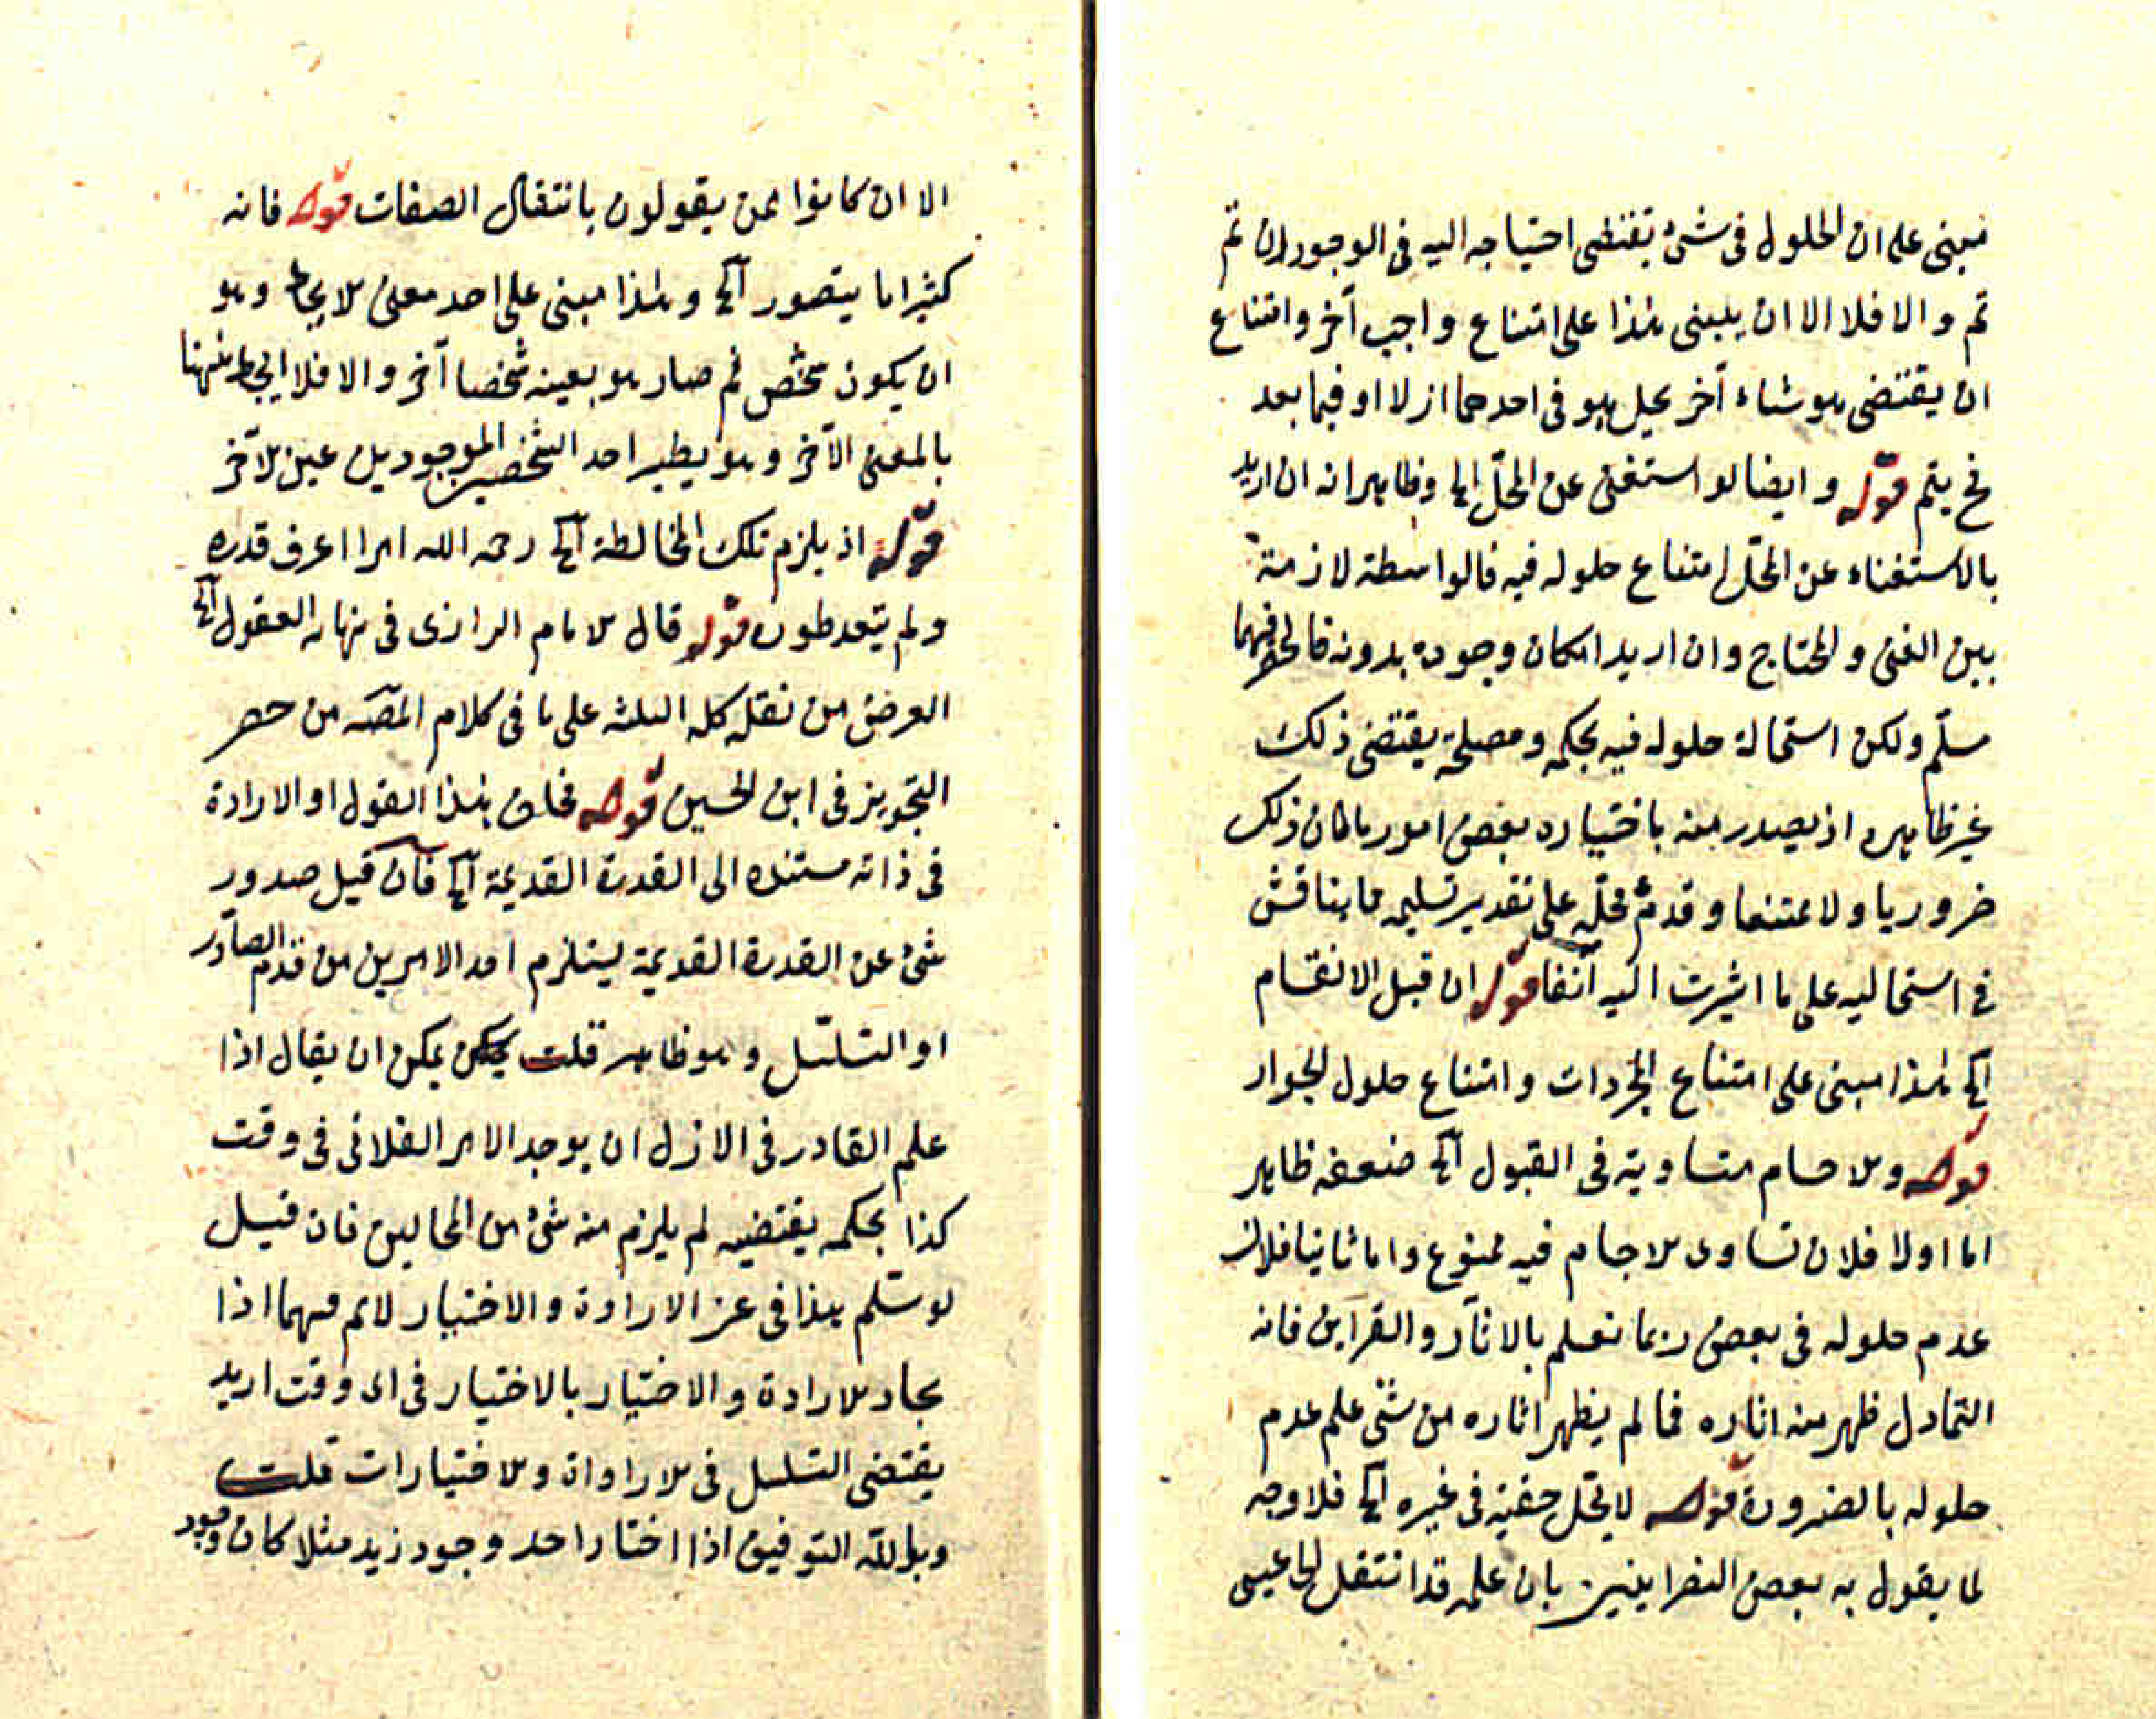 مبنى على ان الحلول فى شئ يقتضى احتياجه اليه فى الوجود ان تم
تم و الا فلا الا ان يبنى هذا على امتناع واجب آخر وامتناع
ان يقتضى هو شاء آخر يحل هو فى احدهما ازلا او فيما بعد
فح يتم قوله و ايضا لو استغنى عن المحل الخ وظاهر انه ان اريد
بالاستغناء عن المحل امتناع حلوله فيه فالواسطة لازمة
بين الغنى و المحتاج وان اريد امكان وجوده بدونه فالحصر فيهما
مسلم ولكن استحالة حلوله فيه بحكمه ومصلحة يقتضى ذلك
غير ظاهره اذ يصدر منه باختياره بعض امور ما كان ذلك
ضروريا ولا ممتنعا و قدم محله على تقدير تسليمه مما يناقش
فى استحاليه على ما اشرت اليه آنفا قوله ان قبل الانقسام
الخ هذا مبنى على امتناع المجردات و امتناع حلول الجوار
قوله والاجسام متساوية فى القبول الخ ضعفه ظاهر
اما اولا فلان تساوى الاجسام فيه ممنوع واما ثانيا فلان
عدم حلوله فى بعض ربما نعلم بالاثار والقراين فانه
التمادل ظهر منه اثاره فما لم يظهر اثاره من شئ علم عدم
حلوله بالضرورة قوله لا يحل حقيته فى غيره الخ فلا وجه
لما يقول به بعض النصرانيين بان علمه قد انتقل الى عيسى
الا ان كانوا ممن يقولون بانتقال الصفات قوله فانه
كثيرا ما يتصور الخ و هذا مبنى على احد معنى الايجاد وهو
ان يكون شخص ثم صار هو بعينه شخصا آخر و الا فلا ههنا
بالمعنى الآخر و هو يطير احد الشخصين الموجودين عين الآخر
قوله اذ يلزم تلك المخالطة الخ رحمه الله امرا اعرف قدره
ولم يتعد طوره قوله قال الامام الرازى فى نهاية العقول الخ
الغرض من نقله كله الثلثة على ما فى كلام المصه من حصر
التجويز فى ابن الحسين قوله فخلق هذا القول او الارادة
فى ذاته مستنده الى القدرة القديمة الخ فان قيل صدور
شئ عن القدرة القديمة يستلزم احد الامرين من قدم الصادر
او التسلسل و هو ظاهر قلت يمكن يمكن ان يقال اذا
علم القادر فى الازل ان يوجد الامر الفلانى فى وقت
كذا بحكمه يقتضيه لم يلزم منه شئ من المحالين فان قيل
لو سلم هذا فى غير الارادة والاختيار لا يتم فيهما اذا
يجاد الارادة و الاختيار بالاختيار فى اى وقت اريد
يقتضى التسلسل فى الارادات والاختيارات قلت
وبالله التوفيق اذا اختار احد وجود زيد مثلا كان وجود